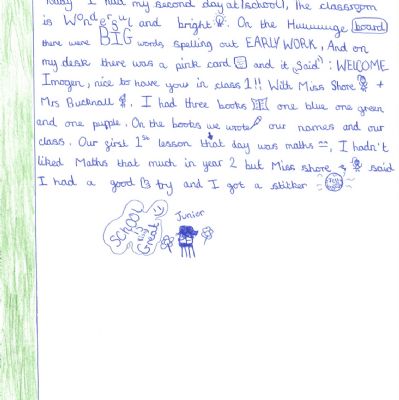 Today I had my second day at school, the classroom
is Wonderful and bright. On the Huuuuuge board
there were BIG words, spelling out EARLY WORK, And on
my desk there was a pink card and it "Said": WELCOME
Imogen, nice to have you in class 1!! With Miss Shore +
Mrs Bucknall. I had three books one blue one green
and one puple. On the books we wrote our names and our
class. Our first 1st lesson that day was maths, I hadn't
liked Maths that much in year 2 but Miss shore said
I had a good try and I got a sticker
Junior
SCHOOL
is
Great